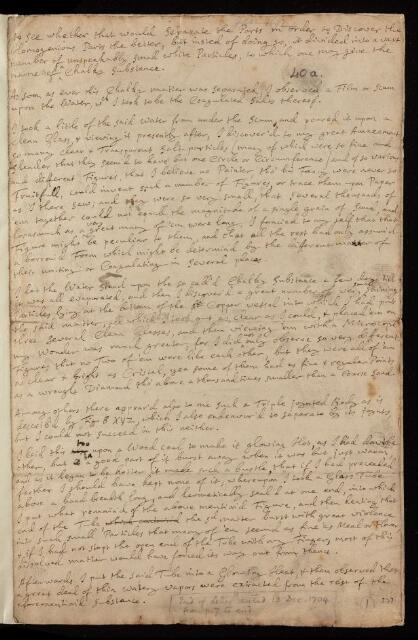 to see whether that would separate the Parts in order to Discover the
Homogenious Parts the better, but insted of doing so, it divided into a vast
number of unspeakably small white Particles, to which one may give the
name of a Chalky Substance.
40a.
As soon as ever this Chalky matter was separated, I observed a Film or Scum
upon the Water, wch I took to be the Coagulated Salts thereof.
I took a little of the said Water from under the Scum, and poured it upon a
clean Glass, & viewing it presently after, I discover'd to my great Amazement
so many clear & Transparent Salt particles (many of which were so fine and
slender that they seem'd to have but one Circle or Circumference) and of so various
and different Figures, that I believe no Painter tho' his Fancy were never so
Fruitfull, could invent such a number of Figures, or trace them upon Paper
as I there saw; and they were so very small, that several thousands of
'em together could not equal the magnitude of a single grain of Sand, and
forasmuch as a great many of 'em were long, I fancied to my self that that
Figure might be peculiar to them, and that all the rest had only assum'd
a borrow'd Form which might be determin'd by the different matter of
their uniting or Coagulating in several places.
I let the Water stand upon the so call'd Chalky Substance a few days till
it was all evaporated, and then I discover'd a great many small
Particles, lying at the bottom of the Copper vessel into which I had put
the said matter, all which I took out as clear as I could, & placed 'em on
three several Clean Glasses, and then viewing 'em with a Microscope
my Wonder was much greater, for I did only observe so very different
Figures that no Two of 'em were like each other, but they were all of 'em
as clear & bright as Cristal, yea some of them had as fine & regular Points
as a wrought Diamond tho' above a thousand times smaller than a Course Sand.
Among others there appear'd also to me such a Triple Jointed Body as is
describ'd by Fig: 8 XYZ, which I also endeavour'd to separate by its Joynts,
but I could not succeed in this neither.
I laid this upon a Wood coal, to make it glowing Hot, as I had done the
other, but a good part of it burst away when it was but just warm,
and as it began to be hotter it made such a bustle, that if I had proceeded
farther I should have kept none of it, whereupon I took a Glass Tube
above a hand breadth long, and hermetically seal'd at one end, into which
I put what remain'd of the above mention'd Figure, and then heating that
end of the Tube the sd matter burst with great violence
into such small Particles that many of 'em seem'd as fine as Meal or Flour,
& if I had not stopt the open end of the Tube with my Finger, most of this
dissolved matter would have forced its way out from thence.
Afterwards, I put the said Tube into a Glowing Heat, & then observed that
a great deal of this watery Vapors were extracted from the rest of the
aforemention'd Substance.